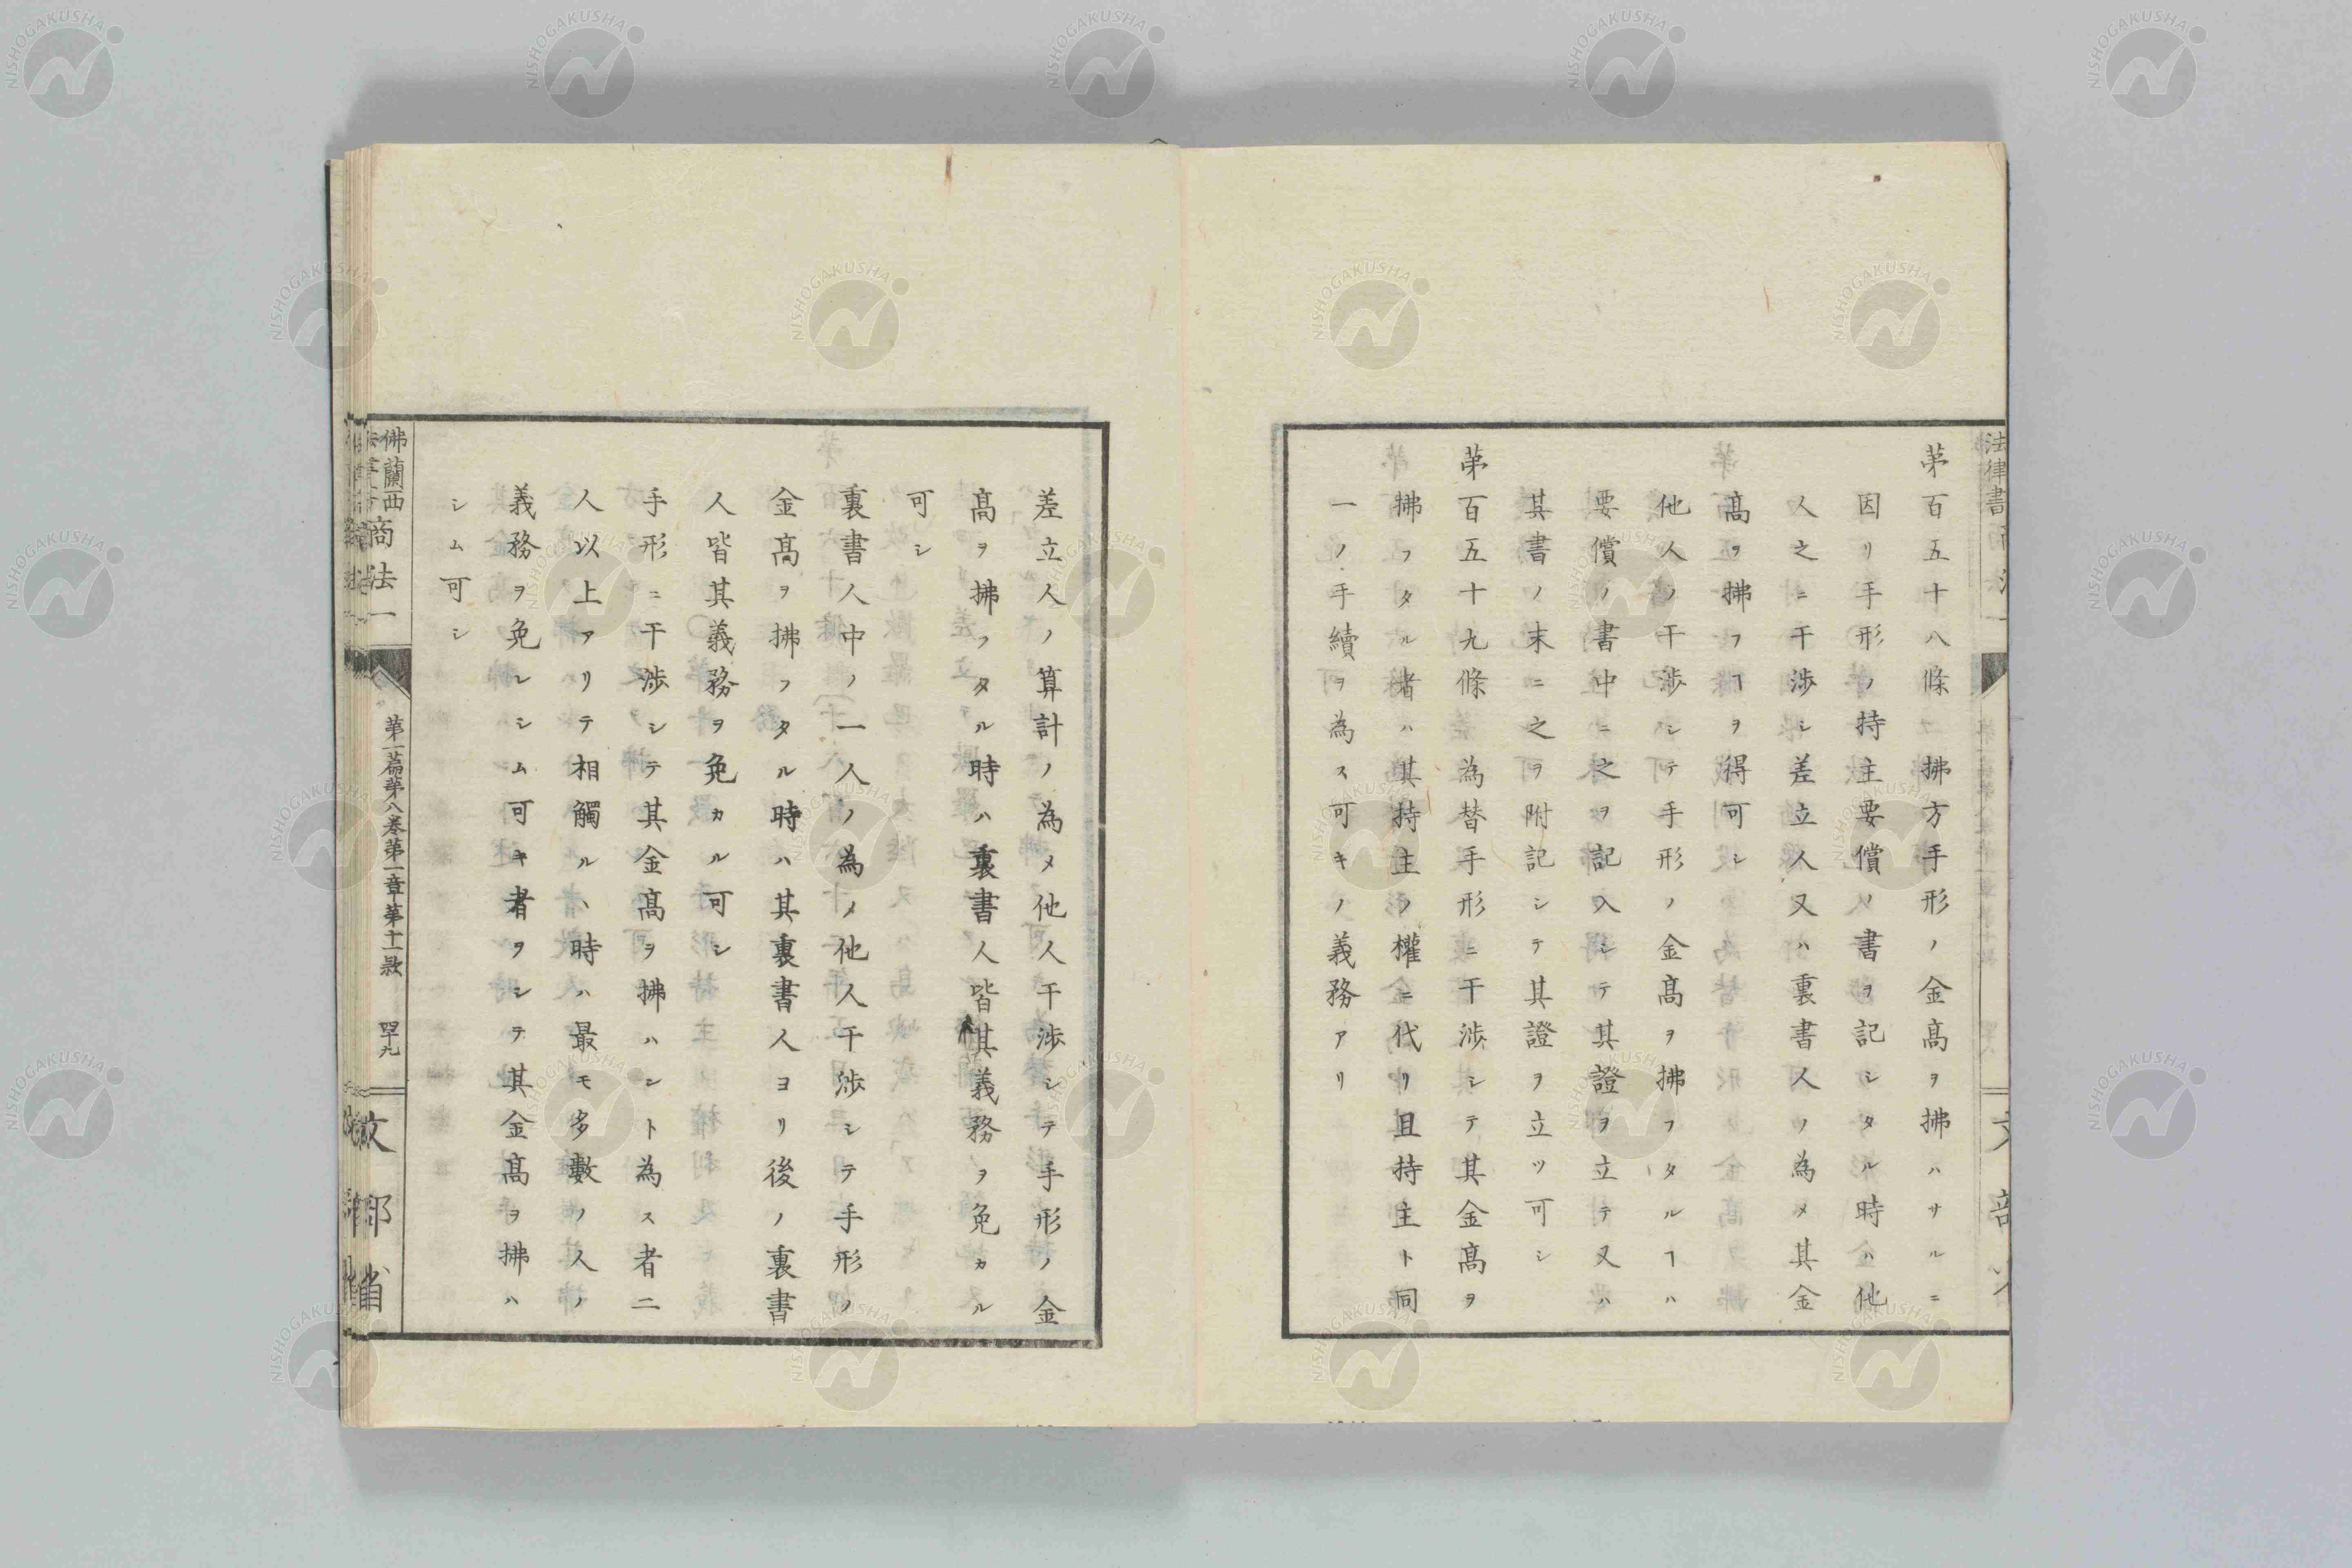 第百五十八條　拂方手形ノ金髙ヲ拂ハサルニ
因リ手形ノ持主要償ノ書ヲ記シタル時ハ他
人之ニ干渉シ差立人又ハ裏書人ノ為メ其金
髙ヲ拂フヿヲ得可シ
他人ノ干渉シテ手形ノ金髙ヲ拂フタルヿハ
要償ノ書中ニ之ヲ記入シテ其證ヲ立テ又ハ
其書ノ末ニ之ヲ附記シテ其證ヲ立ツ可シ
第百五十九條　為替手形ニ干渉シテ其金髙ヲ
拂フタル者ハ其持主ノ權ニ代リ且持主ト同
一ノ手續ヲ為ス可キノ義務アリ
差立人ノ算計ノ為メ他人干渉シテ手形ノ金
髙ヲ拂フタル時ハ裏書人皆其義務ヲ免カル
可シ
裏書人中ノ一人ノ為メ他人干渉シテ手形ノ
金髙ヲ拂フタル時ハ其裏書人ヨリ後ノ裏書
人皆其義務ヲ免カル可シ
手形ニ干渉シテ其金髙ヲ拂ハント為ス者二
人以上アリテ相觸ルヽ時ハ最モ多數ノ人ノ
義務ヲ免レシム可キ者ヲシテ其金髙ヲ拂ハ
シム可シ
佛蘭西
商法一
第一篇第八巻第一章第十一款
四十九
文部省
NISHOGAKUSHA